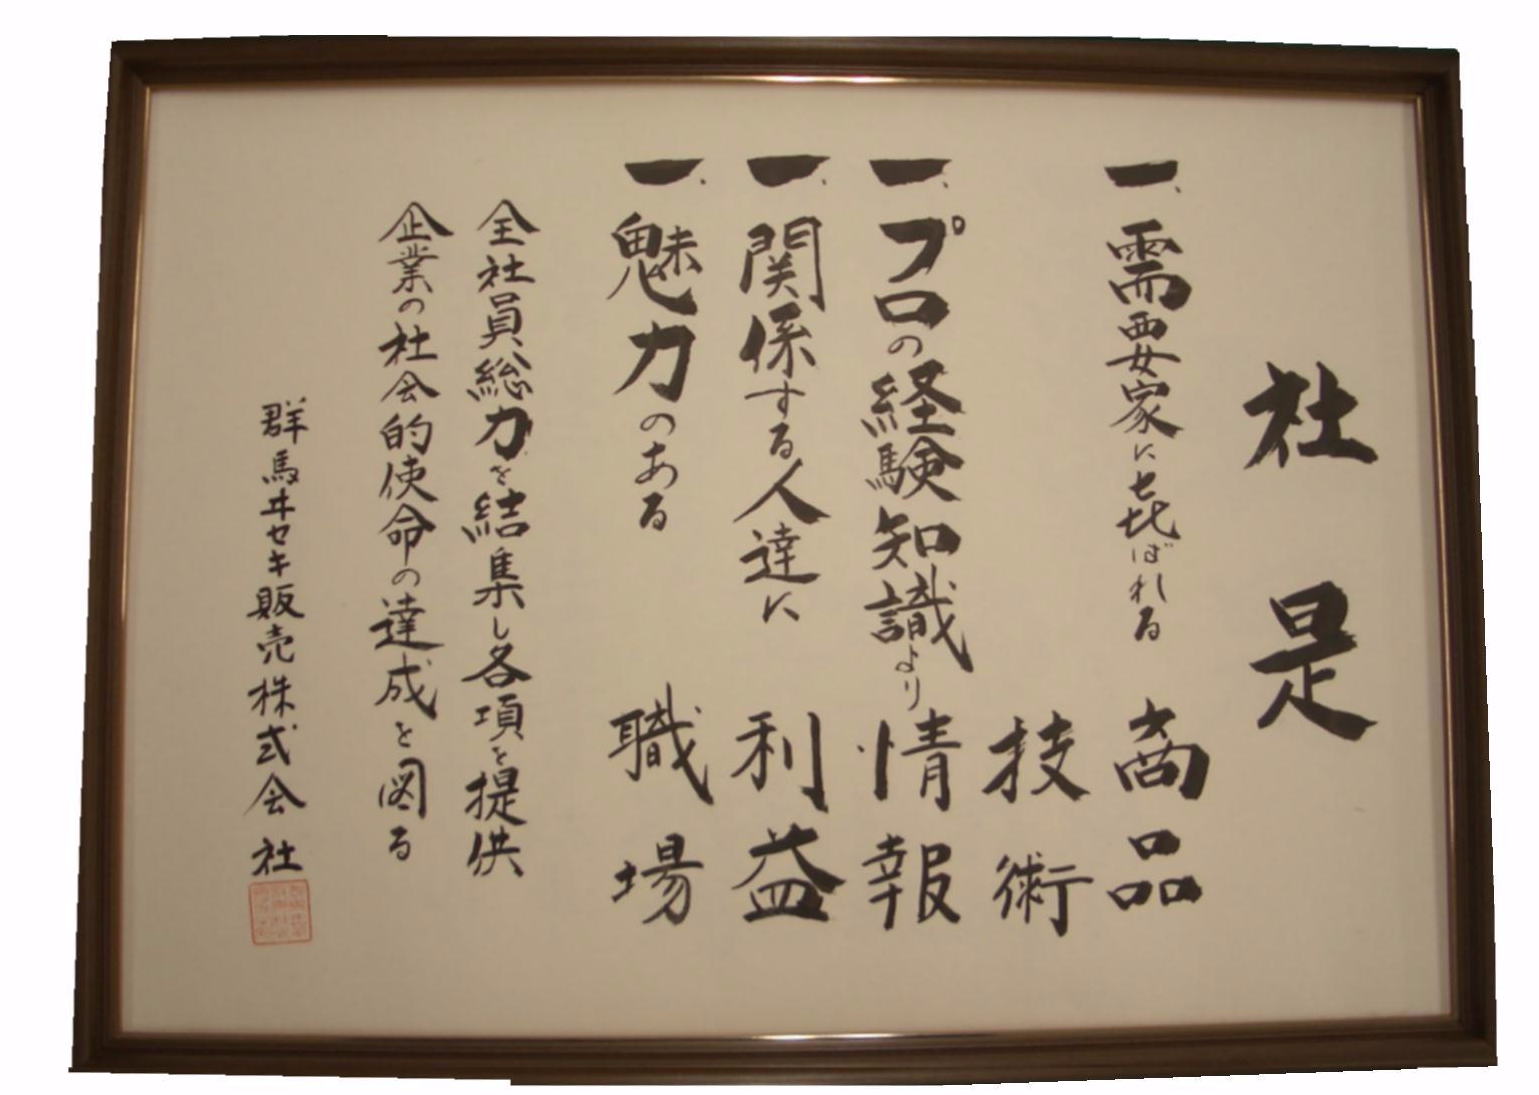 社是
一、需要家に㐂ばれる 商品
技術
一、プロの経験知識より情報
一、関係する人達に 利益
一、魅力のある 職場
全社員総力を結集し各項を提供
企業の社会的使命の達成を図る
群馬ヰセキ販売株式会社